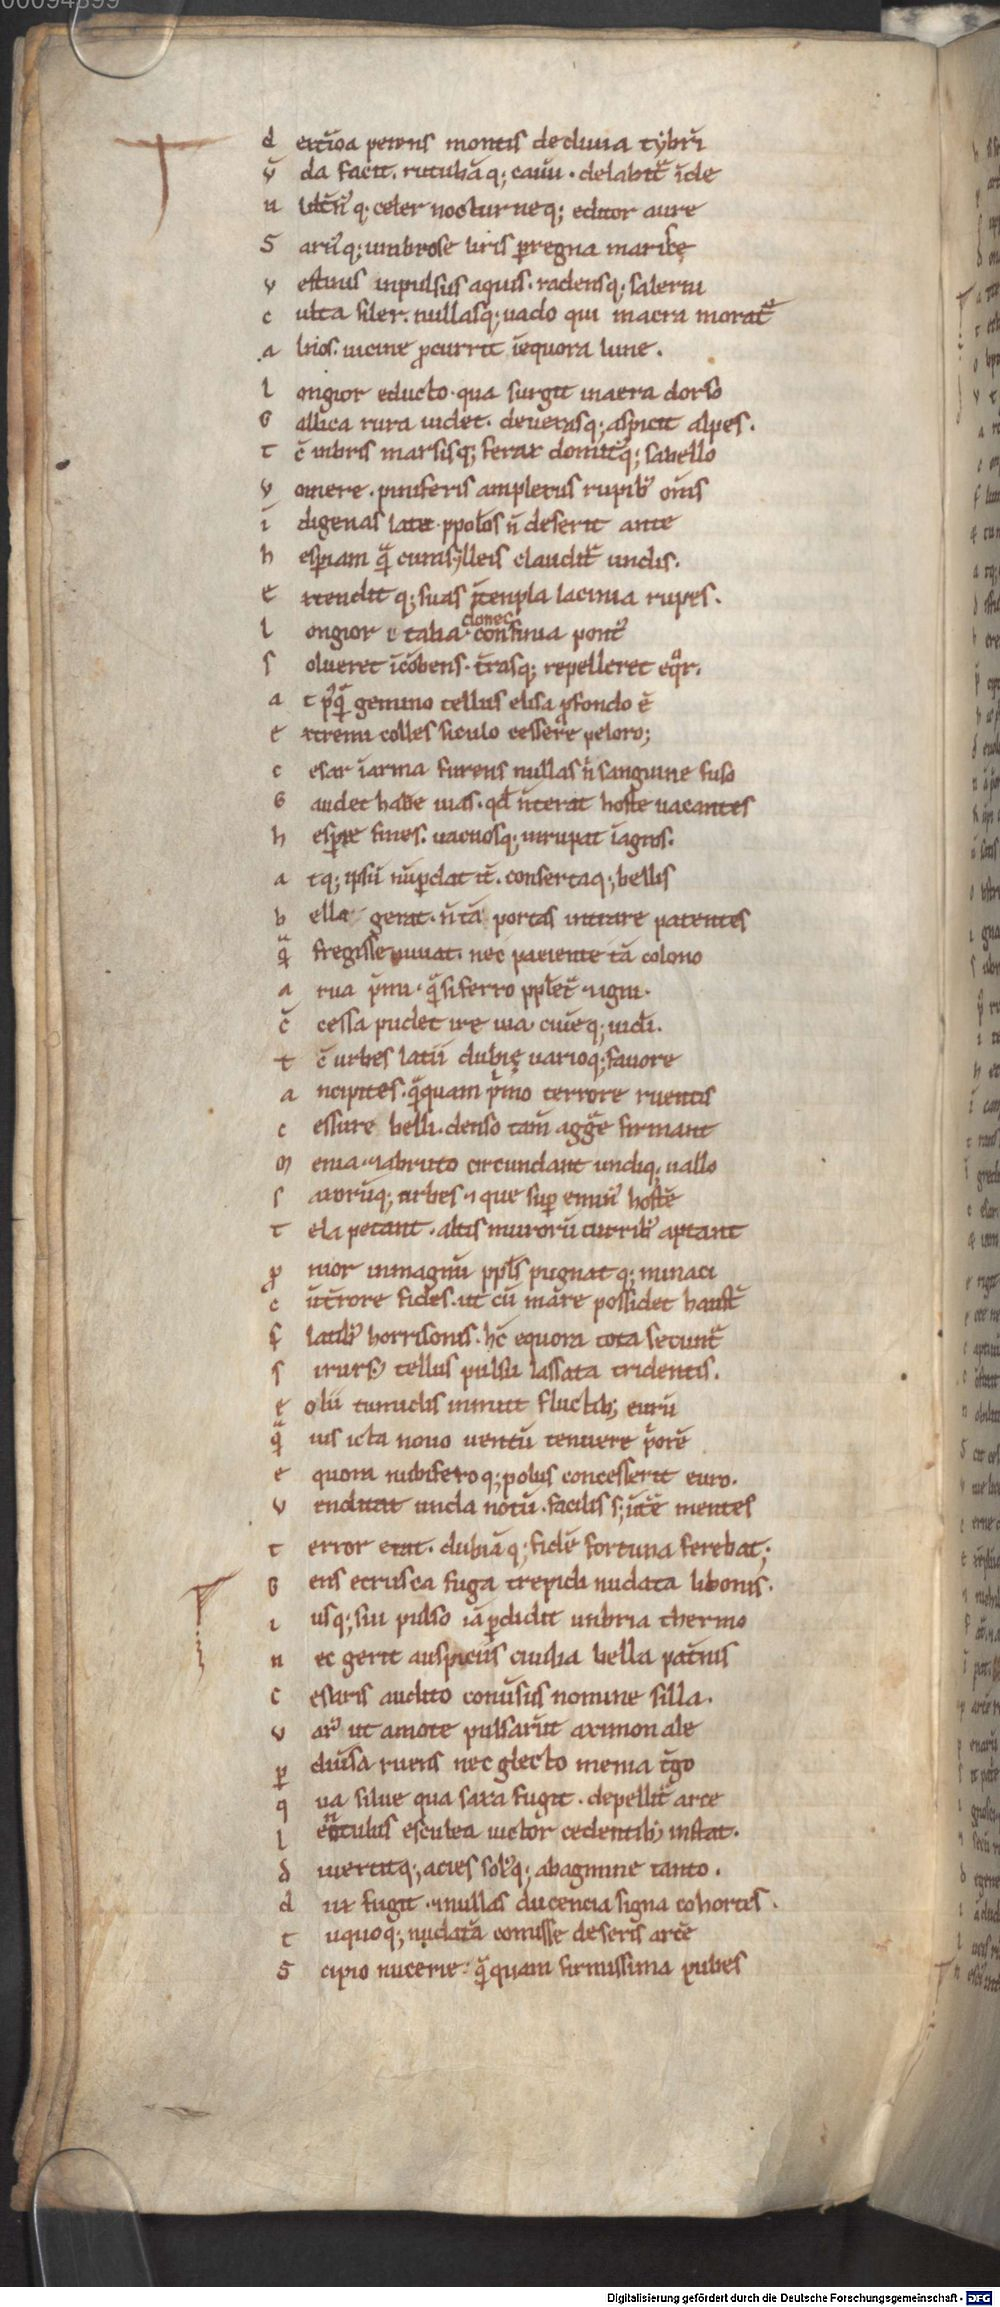 00094899
d exteriora petens montis decliuia tỳbrī
v̄ da facit. rutubāq; cauū. delabit᷑ īde
u ulturn᷑q; celer nocturneq; editor aure
S arn᷑q; umbrose liris per regna maricę
v estinus inpulsus aquis. radensq; salerni
c ulta siler. nullasq; uado qui macra morat᷑
a lnos. uicine ꝓcurrit īequora lune.
l ongior educto. qua surgit inaera dorso
G allica rura uidet. deuexasq; aspicit alpes.
t c̄ umbris marsisq; ferax domit᷑q; sabello
v omere. piniferis amplexus rupib᷑ om̄s
i̅ digenas latii. ppos n̄ deserit ante
h esperiam qᷓ cumsylleis claudit᷑ undis.
E xtendit q; suas ītempla lacinia rupes.
l ongior italia donec confinia pont᷑
s olueret īcūbens. t̄rasq; repelleret eqͦr.
a t pꝰqᷓ gemino tellus elisa ꝓfondo ē
e xtremi colles siculo cessere peloro;
c esar īarma furens nullas n̄ sanguine fuso
G audet habe uias. qd̄ n̄ terat hoste uacantes
h esperie fines. uacuosq; inrupat īagros.
a tq; ipsū nū perdat it᷑. consertaq; bellis
b ella gerat. n̄ tā portas intrare patentes
qᷓ fregisse iuuat. nec paciente tā colono
a rua p̄mi. qᷓ si ferro pplet᷑ ⁊ igni.
c̄ cessa pudet ire uia. ciuēq; uidi.
t c̄ urbes latii dubię uarioq; fauore
a ncipites. qᷓquam p̄mo terrore ruentis
c essure belli. denso tam̄ aggere firmant
m enia. ⁊ abruto circundant undiq; uallo
s axorūq; orbes ⁊ que super emin᷑ hostē
t ela petant. altis murorū turrib᷑ aptant
ꝓ nior inmagnū ppls pugnatq; minaci
c ūt̄rore fides. ut cū mare possidet haust᷑
f latib᷑ horrisonis. hc̄ equora tota secunt᷑
s irursꝰ tellus pulsu laxata tridentis.
ę olii tumidis inmitt fluctib; eurū
qᷓ uis icta nouo uentū tenuere p̄orē
e quora nubiferoq; polus concesserit euro.
v endicat unda notū. facilis s; ūt᷑e mentes
t error erat. dubiāq; fidē fortuna ferebat;
G ens etrusca fuga trepidi nudata libonis.
i usq; sui pulso iā perdidit umbria thermo
n ec gerit auspiciis ciuilia bella pat̄nis
c esaris audito conūsus nomine silla.
v arꝰ ut amote pulsarūt aximon ale
p diūsa ruens neclecto menia t̄go
q ua silue qua saxa fugit. depellit᷑ arce
l entulus esculea uictor cedentib; instat.
d iuertitq; acies sol᷑q; abagmine tanto.
d ux fugit. ⁊ nullas ducencia signa cohortes.
t uquoq; nudatā comisse deseris arcē
S cipio nucerie. qᷓquam firmissima pubes
Digitalisierung gefördert durch die Deutsche Forschungsgemeinschaft - DFG